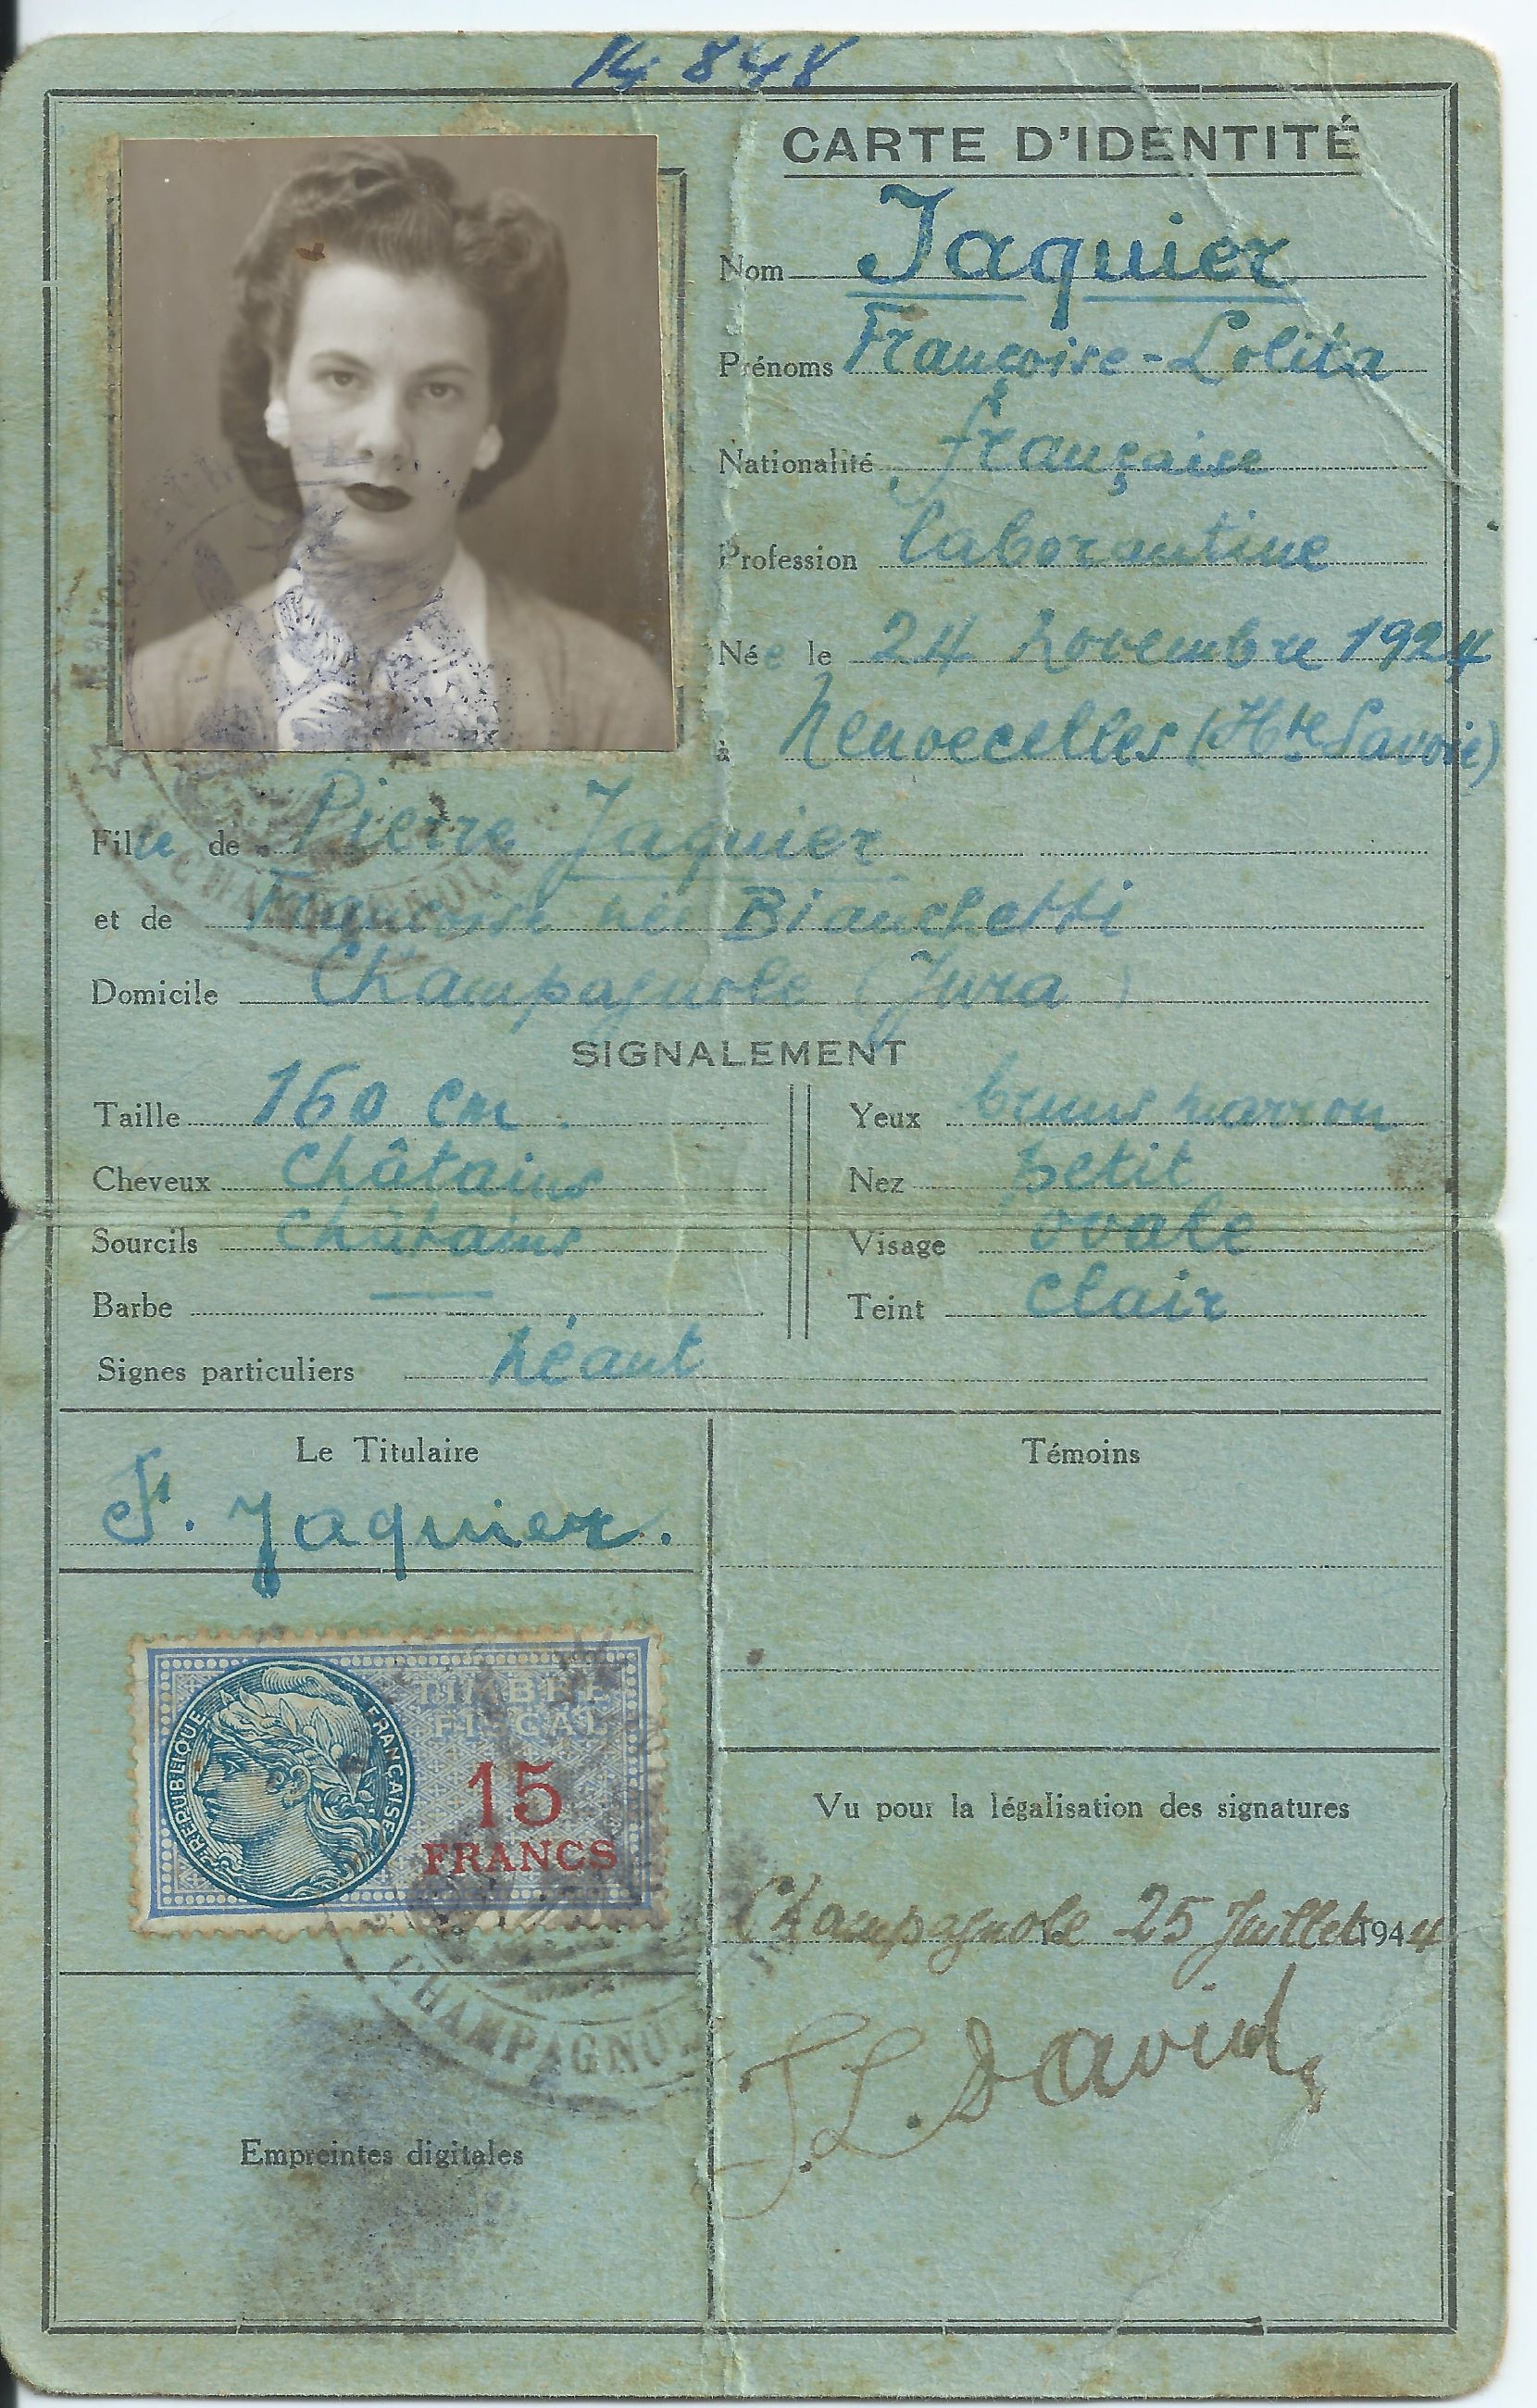 14848
CARTE D'IDENTITÉ
Nom Jaquier
Prénoms Françoise-Lolita
Nationalité française
Profession laborantine
Née le 24 novembre 1924
à Neuvecelles (Hte Savoie)
Fille de Pierre Jaquier
et de Françoise née Bianchetti
Domicile Champagnole (Jura)
SIGNALEMENT
Taille 160 cm Yeux bruns marron
Cheveux châtains Nez petit
Sourcils châtains Visage ovale
Barbe — Teint clair
Signes particuliers néant
Le Titulaire
F. Jaquier.
Témoins
RÉPUBLIQUE FRANÇAISE
TIMBRE
FISCAL
15
FRANCS
Vu pour la légalisation des signatures
Champagnole 25 Juillet 1944
J.L. David
CHAMPAGNOLE
Empreintes digitales